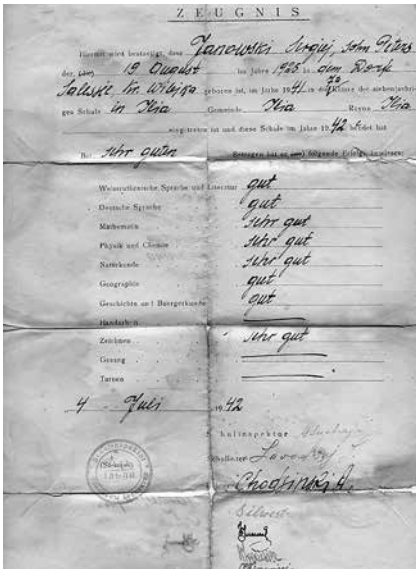 ZEUGNIS
Hiermit wird bestaetigt, dass Janowski Sirgiej, sohn Peters
der, (die) 19 August im Jahre 1925 in dem Dorfe
Saleskje Kr. Wilejka geboren ist, im Jahre 1941 in die 7te Klasse der siebenjaehri-
gen Schule in Ilia Gemeinde Ilia Rayon Ilia
eingetreten ist und diese Schule im Jahre 1942 beendet hat
Bei sehr guten Betragen hat er (sie) folgende Erfolge
Weissruthenische Sprache und Literatur gut
Deutsche Sprache gut
Mathematik sehr gut
Physik und Chemie sehr gut
Naturkunde sehr gut
Geographie gut
Geschichte und Buergerkunde gut
Handarbeit
Zeichnen sehr gut
Gesang
Turnen
4 Juli 1942
Schulinspektor
Schulleiter
Chodsinski A.